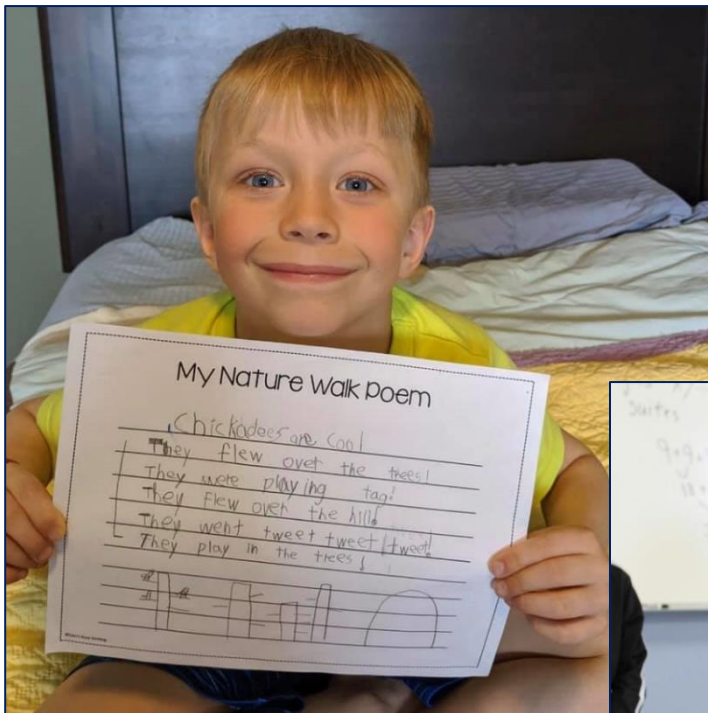 My Nature Walk Poem
Chickadees are Cool
They flew over the trees!
They were playing tag!
They flew over the hill!
They went tweet tweet! tweet!
They play in the trees!
suites
9+9